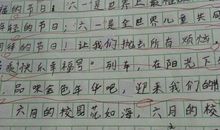 的节日！六一是世界上最
佳的节日；六一是全世界儿童共同
的节日！让我们抛去所有烦恼，
"快乐幸福号"列车，在阳光下
品味金色年华吧，迎来我们的
六月的校园花如海，六月的校